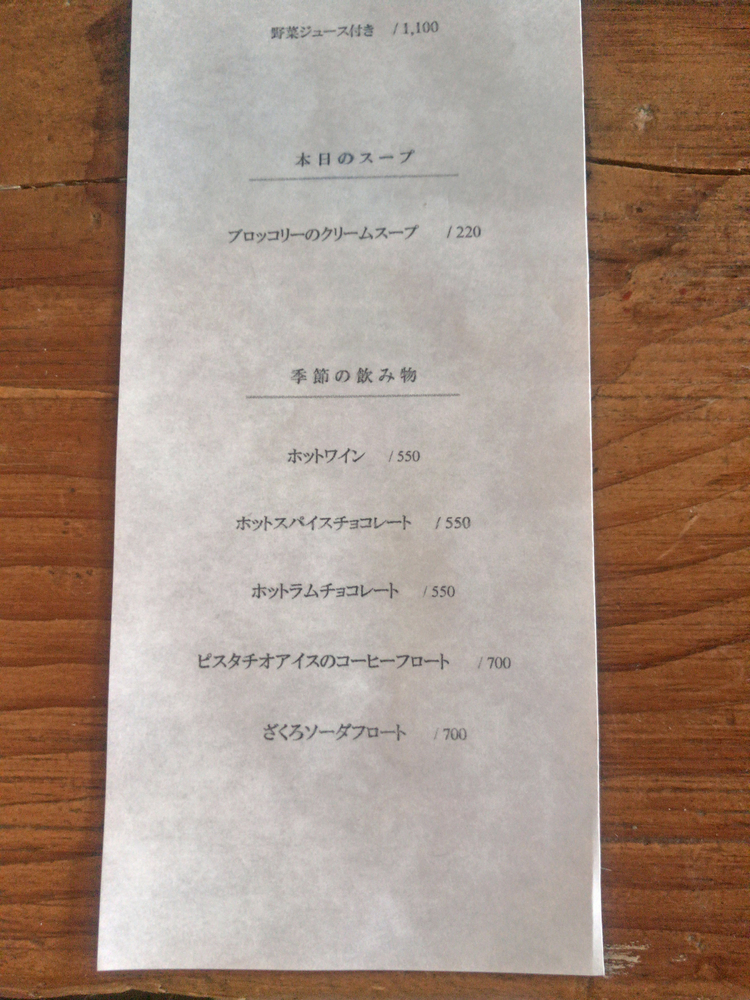 野菜ジュース付き / 1,100
本日のスープ
ブロッコリーのクリームスープ / 220
季節の飲み物
ホットワイン / 550
ホットスパイスチョコレート / 550
ホットラムチョコレート / 550
ピスタチオアイスのコーヒーフロート / 700
ざくろソーダフロート / 700